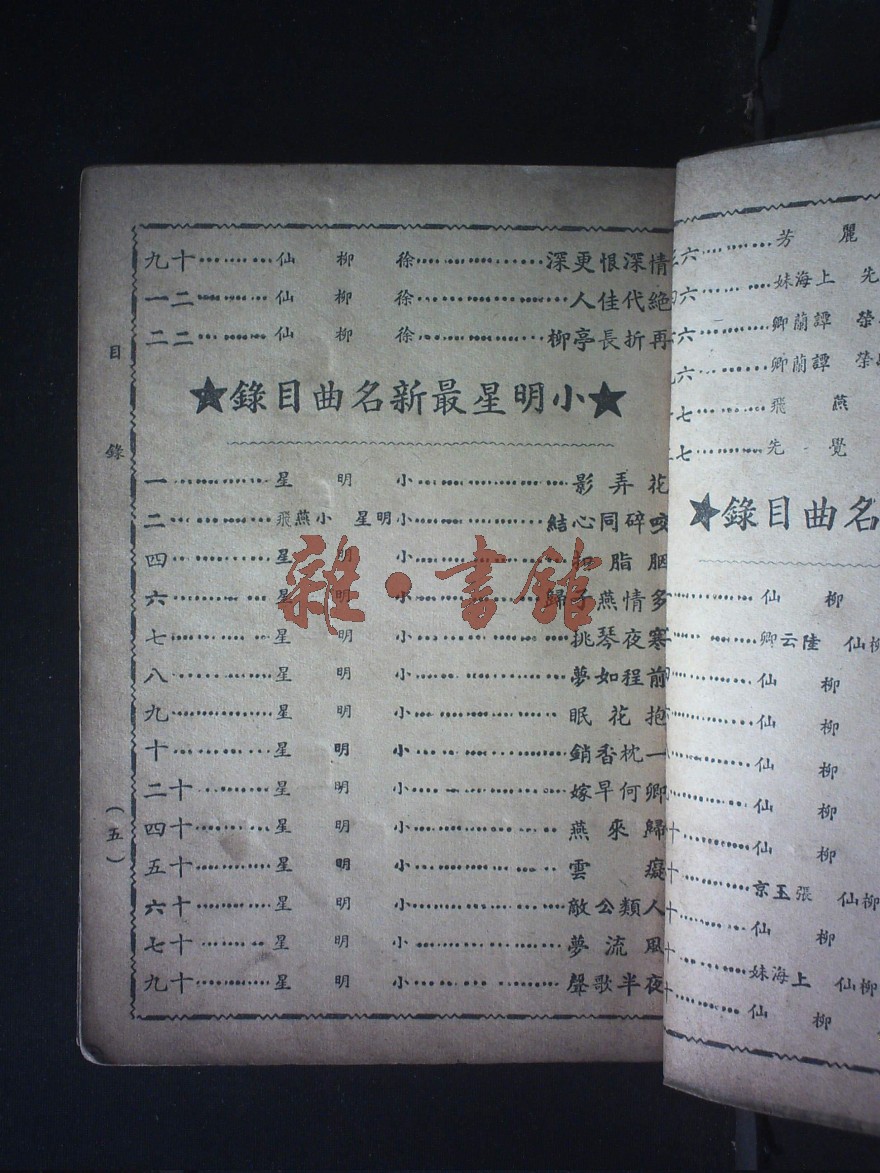 麗芳…………六
先 上海妹…………六
榮 譚蘭卿…………六
榮 譚蘭卿…………六
燕飛…………七
覺先…………七
名曲目錄★
柳仙…………
柳仙 陸云卿…………
柳仙…………
柳仙…………
柳仙…………
柳仙…………
柳仙…………十
柳仙 張玉京…………十
柳仙…………十
柳仙 上海妹…………十
柳仙…………十
情深恨更深…………徐柳仙…………十九
絕代佳人…………徐柳仙…………二一
再折長亭柳…………徐柳仙…………二二
★小明星最新名曲目錄★
花弄影…………小明星…………一
咬碎同心結…………小明星 小燕飛…………二
胭脂…………小明星…………四
多情燕子歸…………小明星…………六
寒夜琴挑…………小明星…………七
前程如夢…………小明星…………八
抱花眠…………小明星…………九
一枕香銷…………小明星…………十
卿何早嫁…………小明星…………十二
歸來燕…………小明星…………十四
癡雲…………小明星…………十五
人類公敵…………小明星…………十六
風流夢…………小明星…………十七
夜半歌聲…………小明星…………十九
目錄
（五）
雜·書館